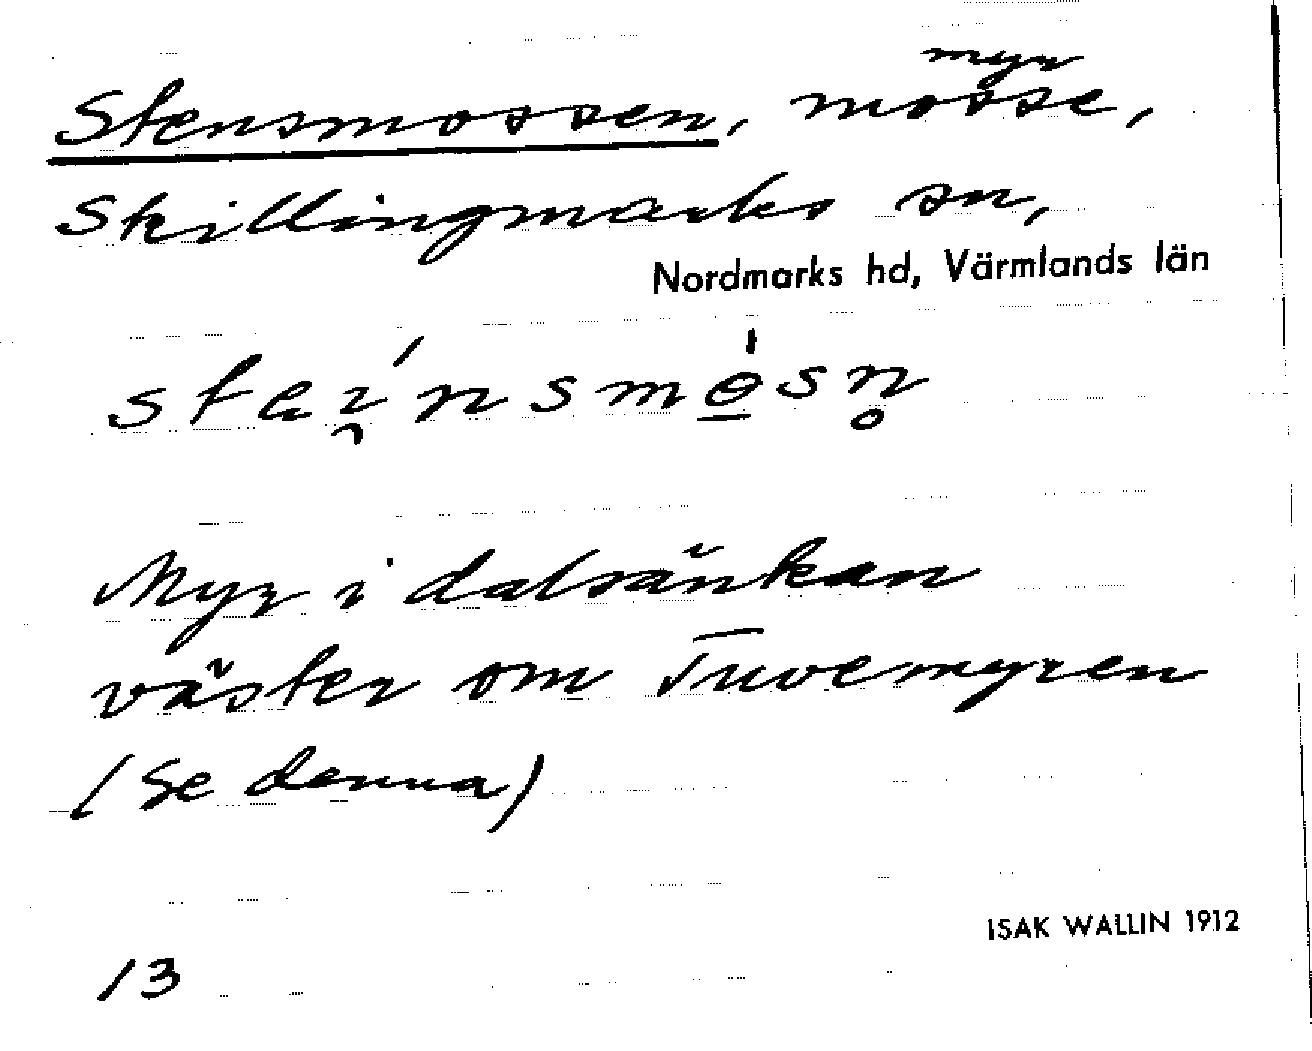 myr
Stensmossen, mosse,
Skillingmarks sn,
Nordmarks hd, Värmlands län
Myr i dalsänkan
väster om Tuvemyren
(Se denna)
ISAK WALLIN 1912
13